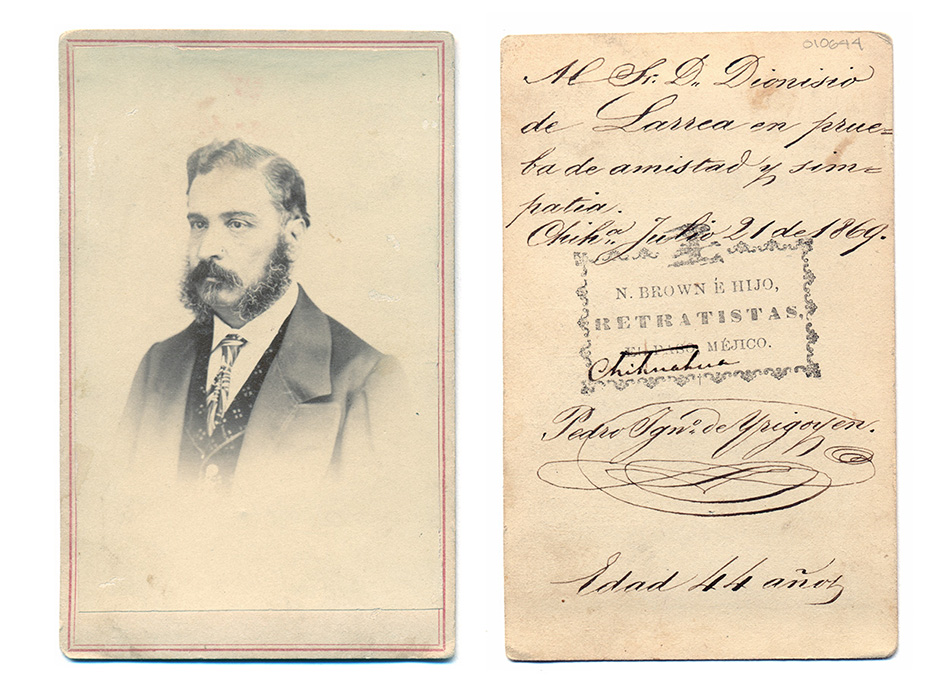 010644
Al Sr. Dn. Dionisio
de Larrea en prue=
ba de amistad y sim=
patia.
Chiha. Julio 21 de 1869.
N. BROWN É HIJO,
RETRATISTAS,
EL PASO, MÉJICO.
Chihuahua
Pedro Igno. de Yrigoyen.
Edad 44 años